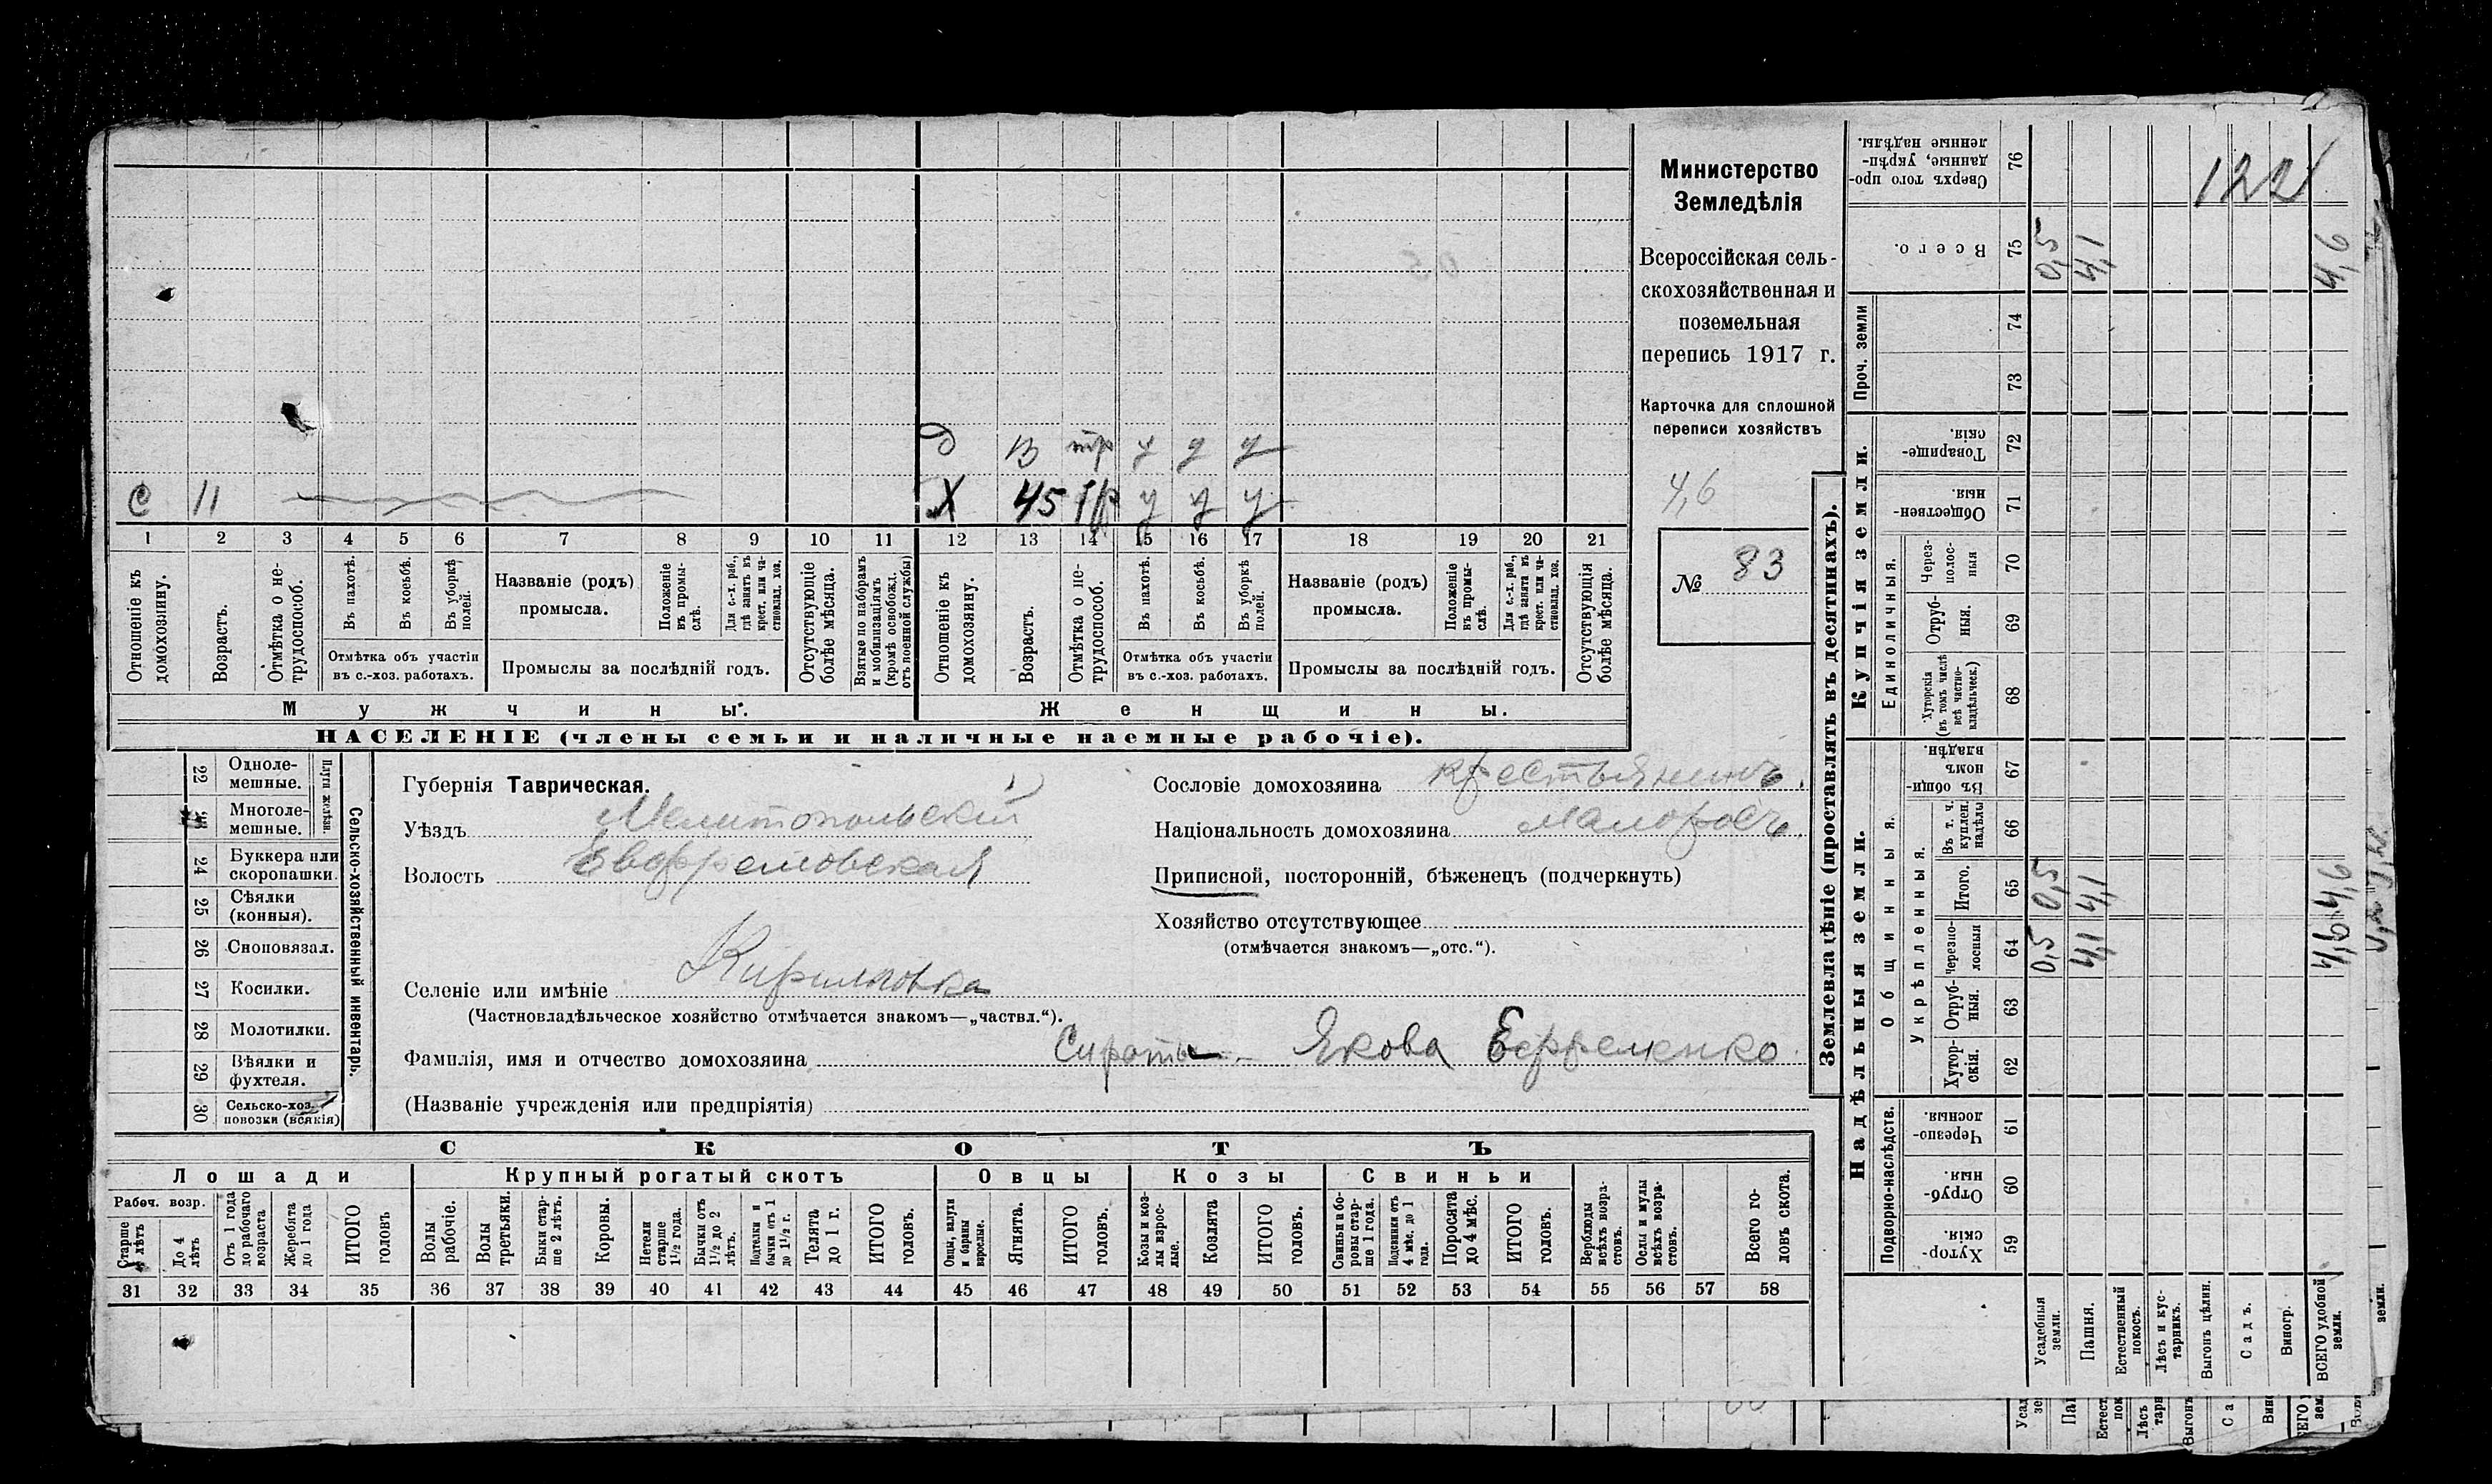 Министерство
Земледѣлія
Всероссійская сель-
скохозяйственная и
поземельная
перепись 1917 г.
Карточка для сплошной
переписи хозяйствъ
4,6
№ 83
122
д 13 тр у у у
с 11
х 45 тр у у у
1 2 3 4 5 6 7 8 9 10 11 12 13 14 15 16 17 18 19 20 21
Отношеніе къ домохозяину.
Возрастъ.
Отмѣтка о не-трудоспособ.
Въ пахотѣ.
Въ косьбѣ.
Въ уборкѣ полей.
Отмѣтка объ участіи
въ с.-хоз. работахъ.
Названіе (родъ)
промысла.
Положеніе въ промы-слѣ.
Для с.-х. раб., гдѣ занятъ въ крест. или ча-стновлад. хоз.
Промыслы за послѣдній годъ.
Отсутствующіе болѣе мѣсяца.
Взятые по наборамъ и мобилизаціямъ (кромѣ освобожд. отъ военной службы)
Отношеніе къ домохозяину.
Возрастъ.
Отмѣтка о не-трудоспособ.
Въ пахотѣ.
Въ косьбѣ.
Въ уборкѣ полей.
Отмѣтка объ участіи
въ с.-хоз. работахъ.
Названіе (родъ)
промысла.
Положеніе въ промы-слѣ.
Для с.-х. раб., гдѣ занята въ крест. или ча-стновлад. хоз.
Промыслы за послѣдній годъ.
Отсутствующія болѣе мѣсяца.
Мужчины.
Женщины.
НАСЕЛЕНІЕ (члены семьи и наличные наемные рабочіе).
Сельско-хозяйственный инвентарь.
Плуги желѣзн.
22 Одноле-мешные.
Многоле-мешные.
24 Буккера или скоропашки.
25 Сѣялки (конныя).
26 Сноповязал.
27 Косилки.
28 Молотилки.
29 Вѣялки и фухтеля.
30 Сельско-хоз. повозки (всякія)
Губернія Таврическая.
Уѣздъ Мелитопольскій
Волость Ефремовская
Селеніе или имѣніе Кириловка
(Частновладѣльческое хозяйство отмѣчается знакомъ—„частвл.“).
Фамилія, имя и отчество домохозяина Сироты Якова Ефременко
(Названіе учрежденія или предпріятія)
Сословіе домохозяина крестьянинъ.
Національность домохозяина малороссъ.
Приписной, посторонній, бѣженецъ (подчеркнуть)
Хозяйство отсутствующее
(отмѣчается знакомъ—„отс.“).
СКОТЪ
Лошади
Крупный рогатый скотъ
Овцы
Козы
Свиньи
Рабоч. возр.
Старше лѣтъ
До 4 лѣтъ
Отъ 1 года до рабочаго возраста
Жеребята до 1 года
ИТОГО головъ
Волы рабочіе.
Волы третьяки.
Быки стар-ше 2 лѣтъ.
Коровы.
Нетели старше 1½ года.
Бычки отъ 1½ до 2 лѣтъ.
Подтелки и бычки отъ 1 до 1½ г.
Телята до 1 г.
ИТОГО головъ.
Овцы, валухи и бараны взрослые.
Ягнята.
ИТОГО головъ.
Козы и коз-лы взрос-лые.
Козлята
ИТОГО головъ.
Свиньи и бо-ровы стар-ше 1 года.
Подсвинки отъ 4 мѣс. до 1 года.
Поросята до 4 мѣс.
ИТОГО головъ.
Верблюды всѣхъ возра-стовъ.
Ослы и мулы всѣхъ возра-стовъ.
Всего го-ловъ скота.
31 32 33 34 35 36 37 38 39 40 41 42 43 44 45 46 47 48 49 50 51 52 53 54 55 56 57 58
Землевладѣніе (проставлять въ десятинахъ).
Надѣльныя земли.
Купчія земли.
Проч. земли
Подворно-наслѣдств.
Общинныя.
Укрѣпленныя.
Единоличныя.
Сверхъ того про-данные, укрѣп-ленные надѣлы. 76
Всего. 75 0,5 4,1 4,6
74
73
Товарище-скія. 72
Обществен-ныя. 71
Через-полос-ныя 70
Отруб-ныя. 69
Хуторскія (въ томъ числѣ всѣ частно-владѣльческ.) 68
Въ общин-номъ владѣн. 67
Въ т. ч. куплен. надѣлы 66
Итого. 65 0,5 4,1 4,6
Черезпо-лосныя 64 0,5 4,1 4,6
Отруб-ныя. 63
Хутор-скія. 62
Черезпо-лосныя. 61
Отруб-ныя. 60
Хутор-скія. 59
Усадебныя земли.
Пашня.
Естественный покосъ.
Лѣсъ и кус-тарникъ.
Выгонъ цѣлин.
Садъ.
Виногр.
ВСЕГО удобной земли.
земли.